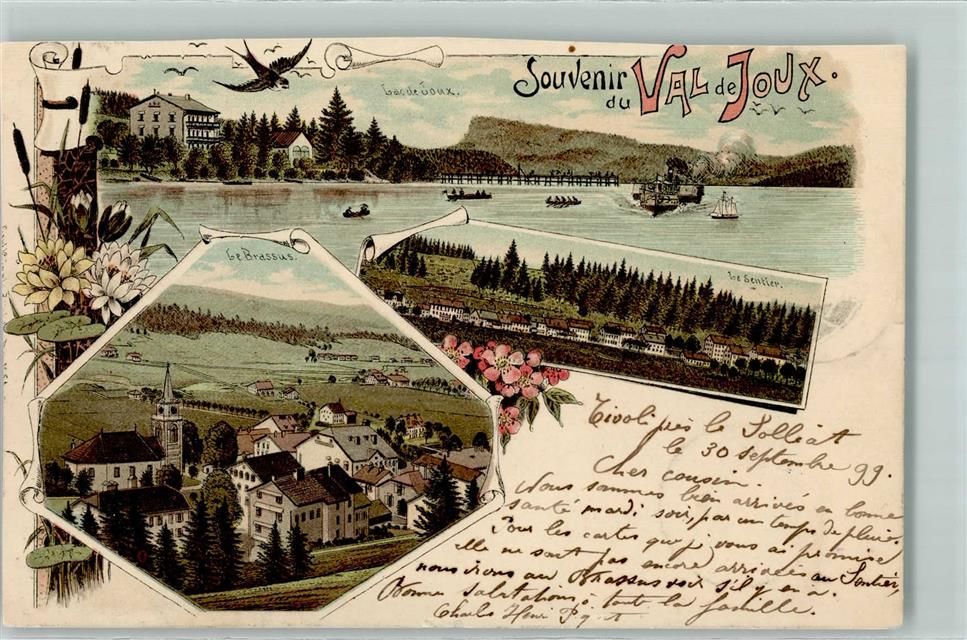 Souvenir
du
VAL de JOUX.
Lac de Joux.
Le Brassus.
Le Sentier.
Tivoli près le Solliat
le 30 septembre 99.
Cher cousin.
Nous sommes bien arrivés en bonne
santé mardi soir, par un temps de pluie.
Pour les cartes que j vous ai promise
elle ne sont pas encore arrivées au Sentier,
nous irons au Brassus voir s'il y en a.
Bonne salutations à toute la famille.
Charles Henri